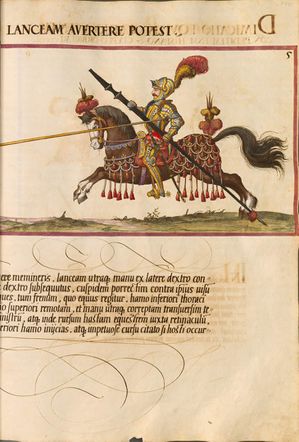 LANCEAM AVERTERE POTEST.
5
ere memineris, lanceam utraq; manu ex latere dextro con
e dextro subsequutus, cuspidem porrectim contra ipsius uisū
ques, tum frenum, quo equus regitur, hamo inferiori thoraci
no superiori remotam, et manu utraq; correptam transuersim te
inistru, atq; inde rursum hastam equestrem iuxta retinaculū
eriori hamo inijcias, atq; impetuose cursu citato is hosti occur